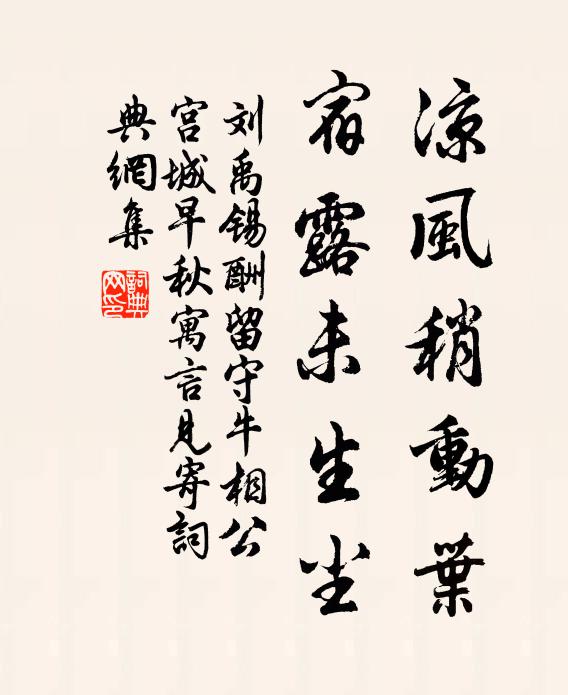 涼風稍動葉
宿露未生尘
刘禹锡酬留守牛相公
宫城早秋寓言見寄詞
典網集
詞典网印